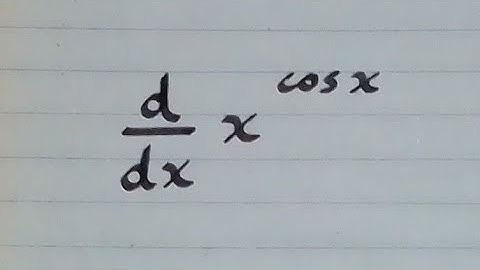 d/dx x^cos x